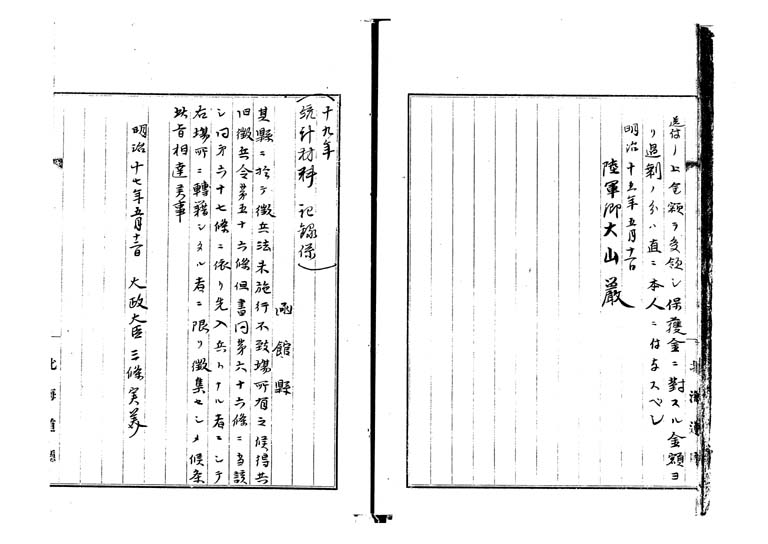 送付ノ上金額ヲ受領シ保護金ニ對スル金額ヨ
リ過剰ノ分ハ直ニ本人ニ付与スベシ
明治十五年五月十二日
陸軍卿大山巌
北海道廳
(十九年
統計材料 記録係)
函館縣
其縣ニ於テ徴兵法未施行不致場所有之候得共
旧徴兵令第五十六條但書同第六十六條ニ当該
シ同第六十七條ニ依リ先入兵トナル者ニシテ
右場所ニ轉籍シタル者ニ限リ徴集セシメ候条
此旨相達候事
明治十七年五月十二日 太政大臣三條実美
北海道廳